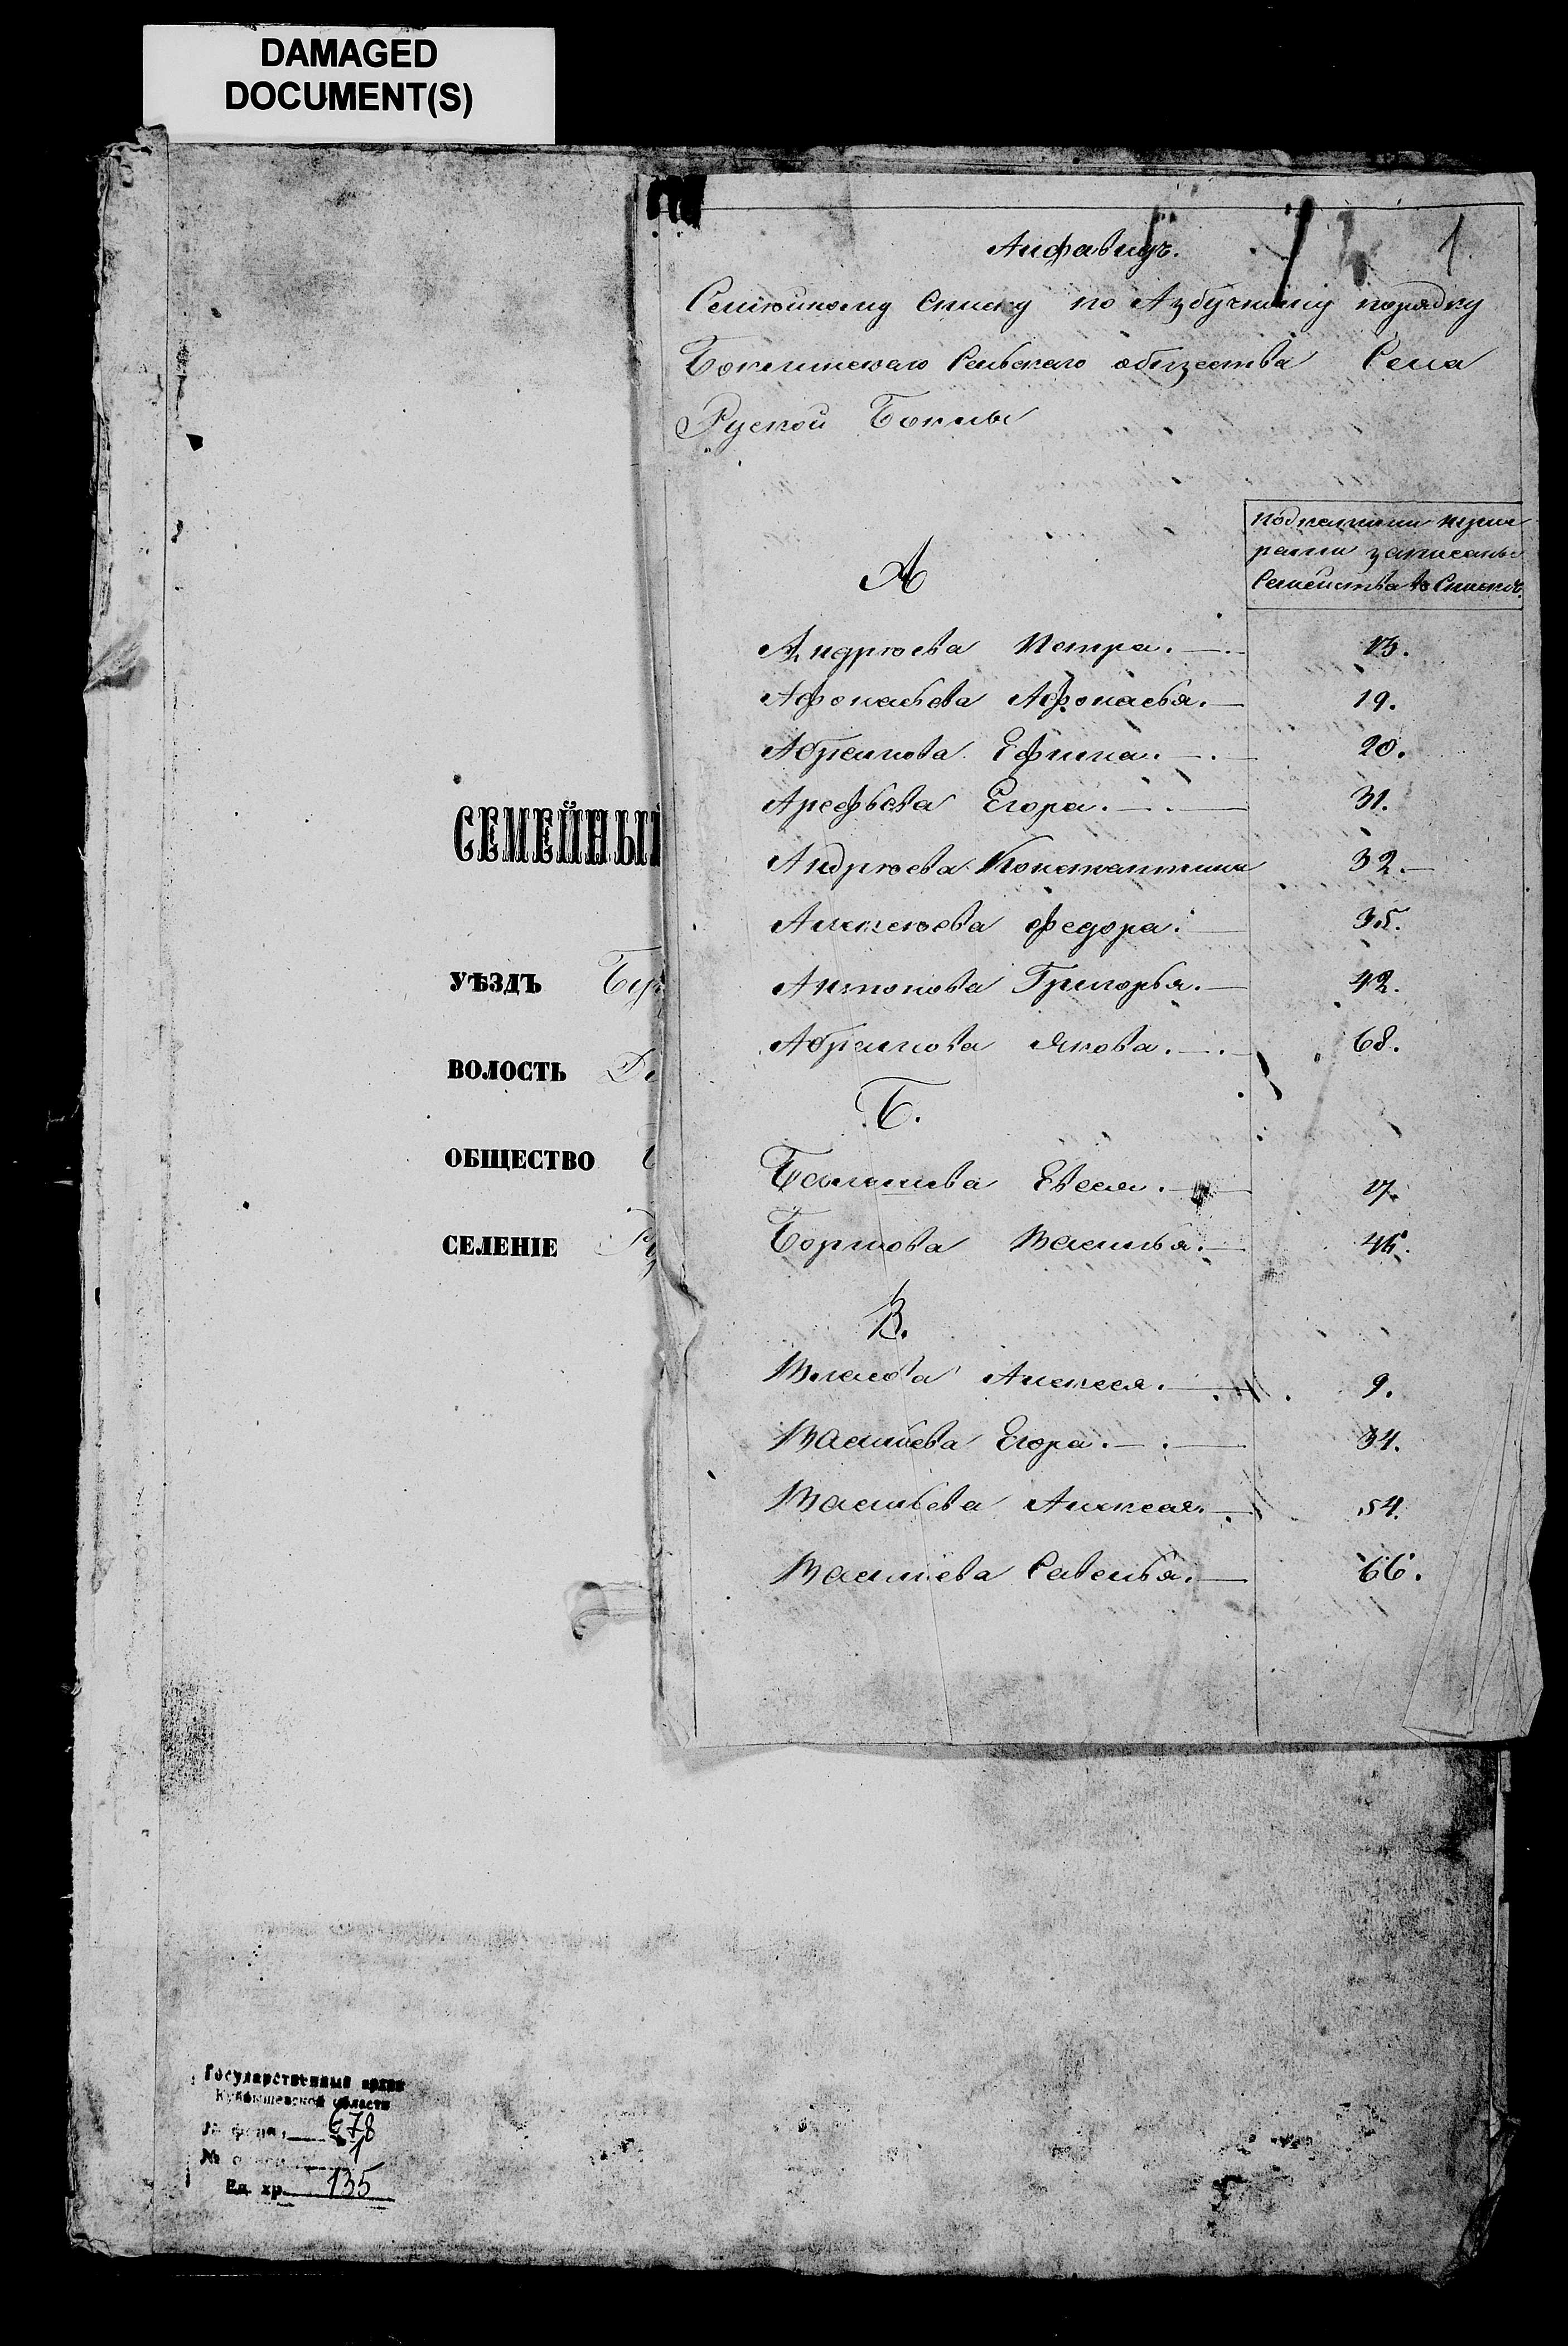 DAMAGED
DOCUMENT(S)
1
Алфавитъ.
Семѣйному Списку по Азбучному порядку
Боклинскаго Сельскаго общества Села
Руской Боклы
подкакими нуме
рами записаны
Семейства въ Спискѣ.
А
Андрѣева Петра. 13.
Афонасьева Афонасья. 19.
Абрамова Ефима. 20.
Арефьева Егора. 31.
Андрѣева Константина 32.
Алексѣева Федора. 35.
Антонова Григорья. 42.
Абрамова Якова. 68.
Б.
Евсея. 17.
Василья.
В.
Власова Алексея. 9.
Васильева Егора. 34.
Васильева Алексея. 54.
Васильева Савелья. 66.
СЕМЕЙНЫЙ
УѢЗДЪ Буг
ВОЛОСТЬ
ОБЩЕСТВО
СЕЛЕНІЕ Ру
Государственный архив
Куйбышевской области
№ фонд 678
№ 1
Ед. хр. 135